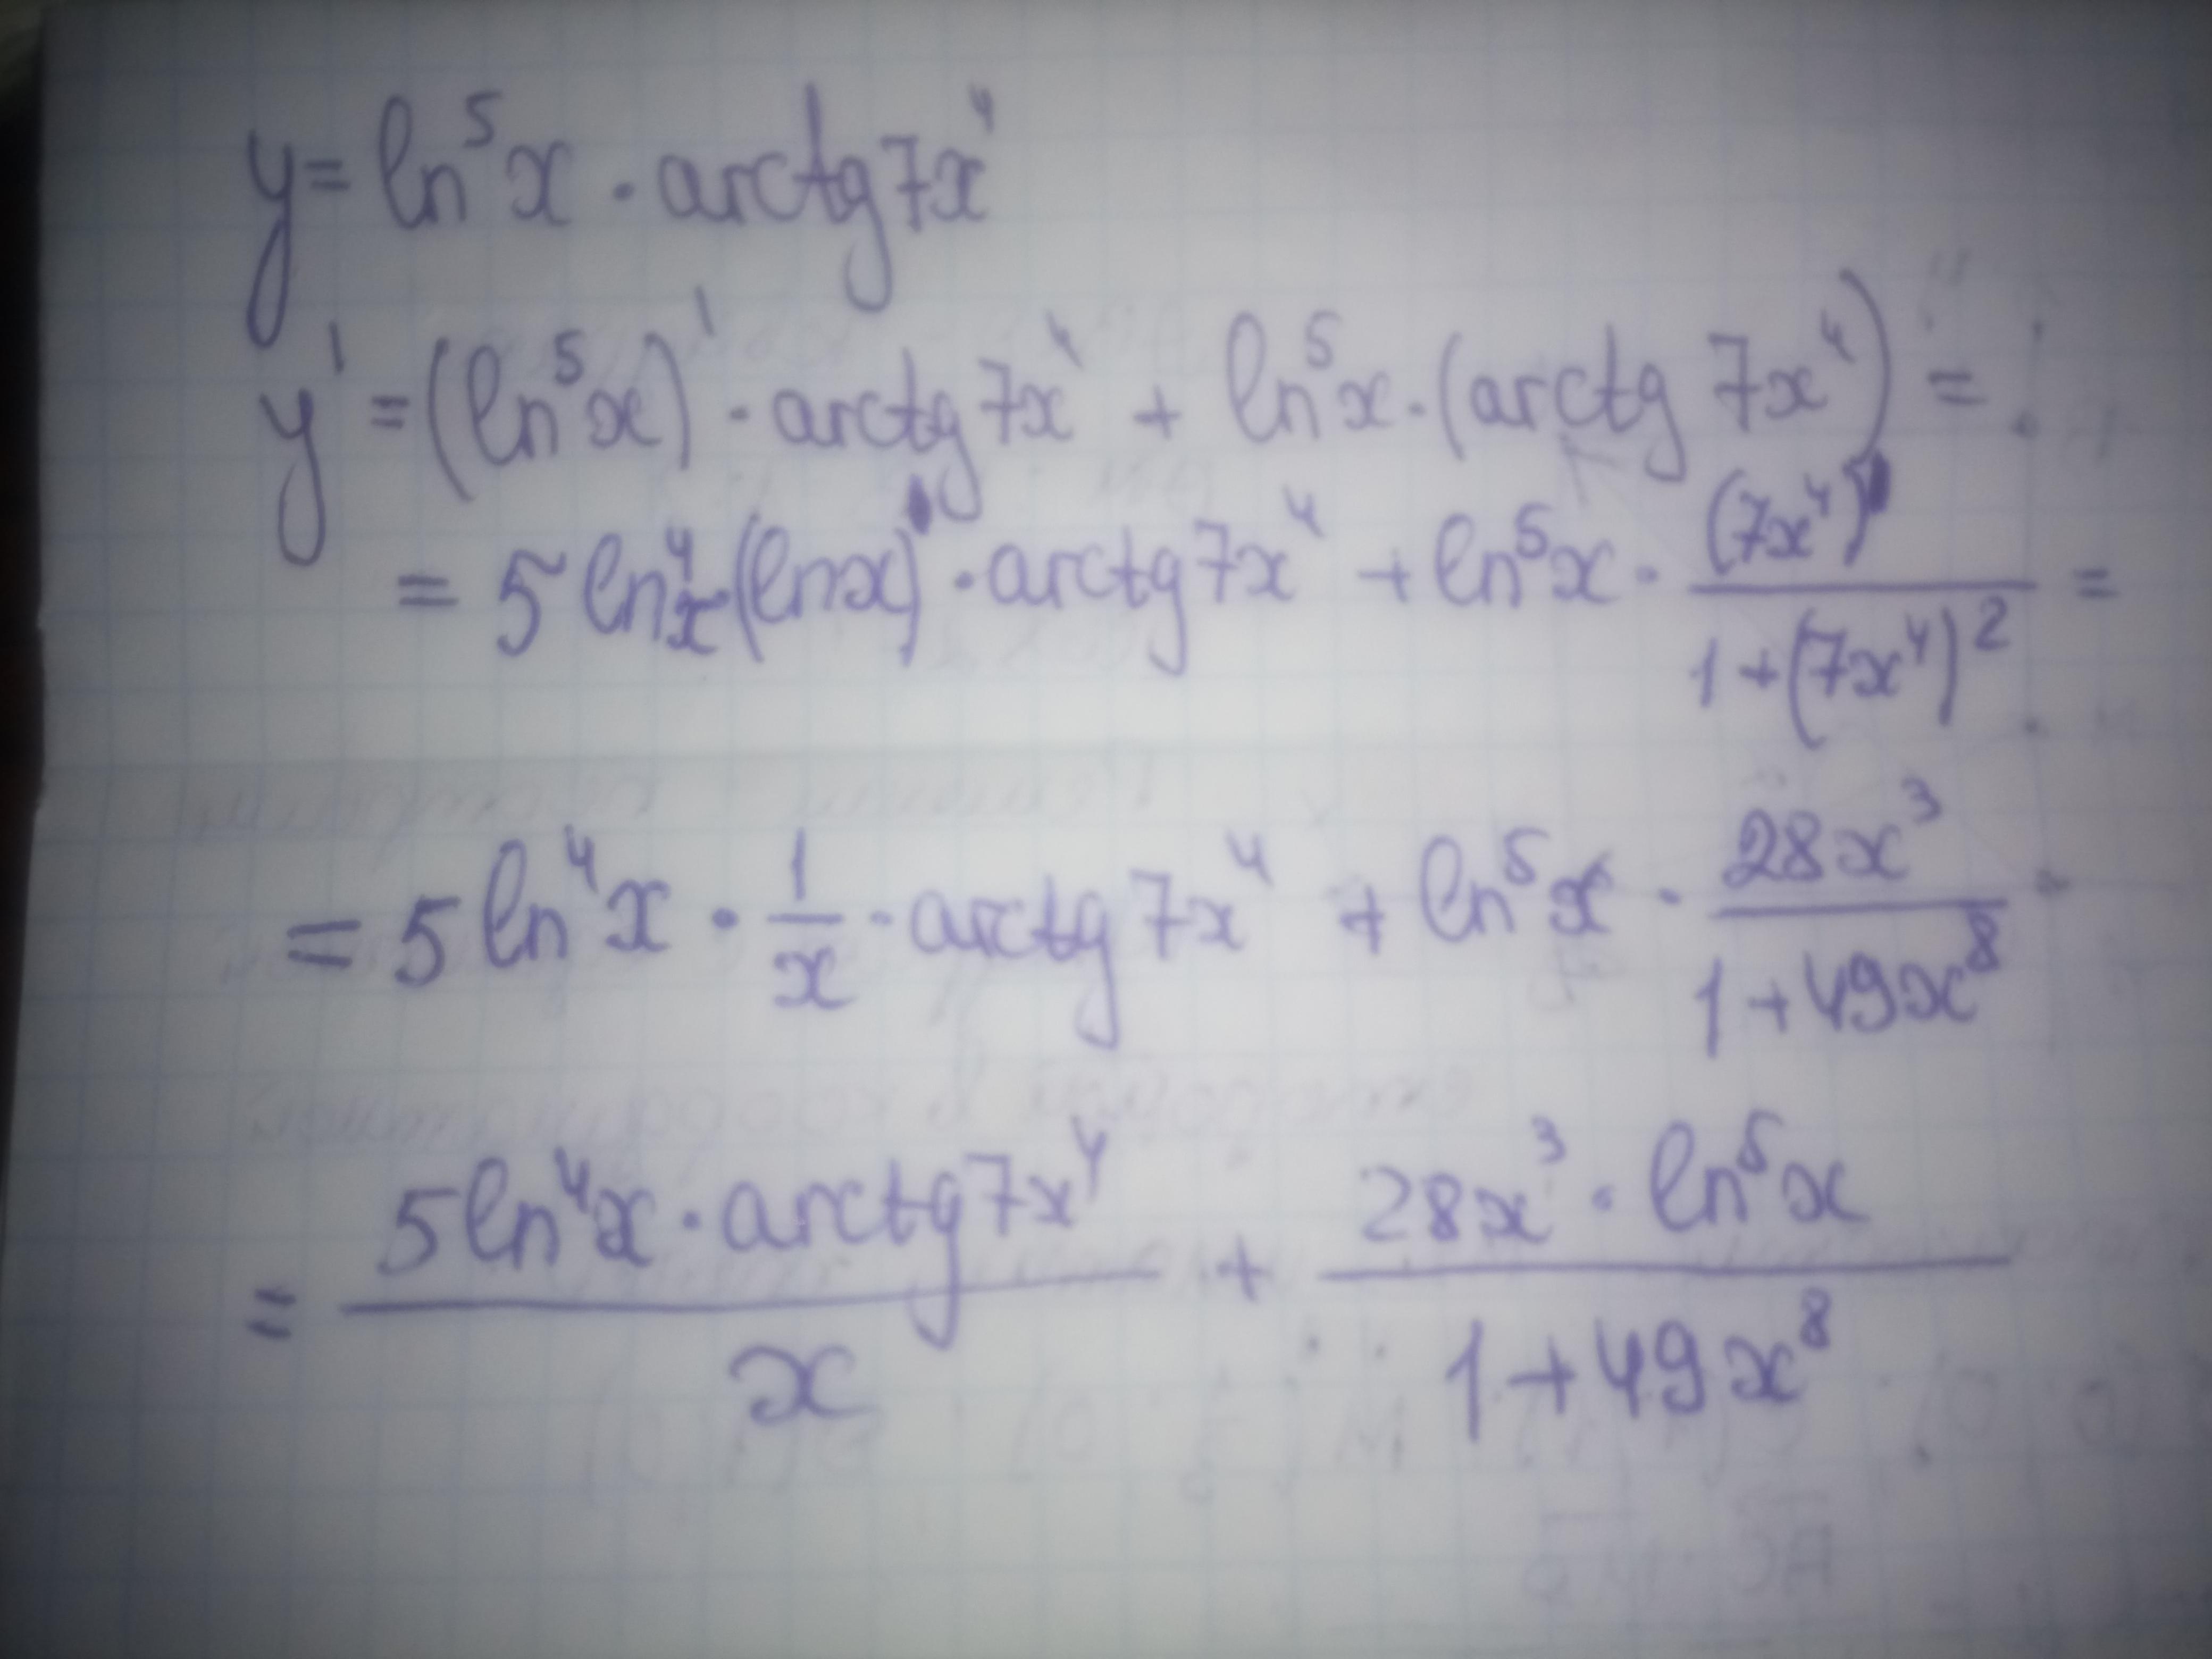 y = ln⁵x · arctg 7x⁴
y' = (ln⁵x)' · arctg 7x⁴ + ln⁵x · (arctg 7x⁴) =
= 5 ln⁴x (ln x)' · arctg 7x⁴ + ln⁵x · (7x⁴)' / (1 + (7x⁴)²) =
= 5 ln⁴x · 1/x · arctg 7x⁴ + ln⁵x · 28x³ / (1 + 49x⁸) =
= (5 ln⁴x · arctg 7x⁴) / x + (28x³ · ln⁵x) / (1 + 49x⁸)